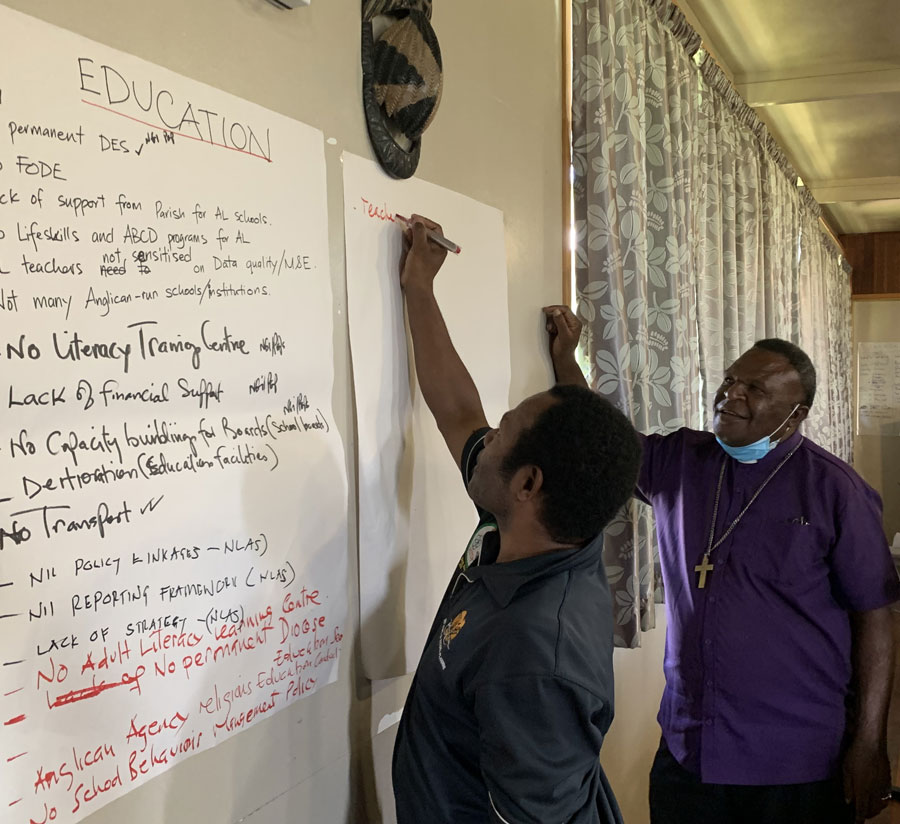 EDUCATION
permanent DES ✓
FODE
ck of support from Parish for AL schools.
Lifeskills and ABCD programs for AL
not sensitised
teachers need to on Data quality/M&E.
Not many Anglican-run schools/institutions.
- No Literacy Training Centre
Lack of Financial Support
- No Capacity buildings for Boards (School boards)
- Dertioration (Education facilities)
No Transport ✓✓
- NIL POLICY LINKAGES - NLAS)
- NIL REPORTING FRAMEWORK (NLAS)
- LACK OF STRATEGY - (NLAS)
- No Adult Literacy Learning Centre.
- Lack of No permanent Diocese
Education Sec
- Anglican Agency religious Education
- No School Behaviour Management Policy
- Teache